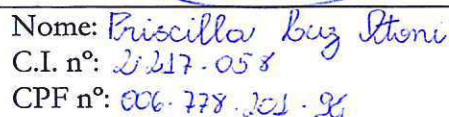 Nome: Priscilla Luz
C.I. nº: 2.217.058
CPF nº: 006.778.201-96